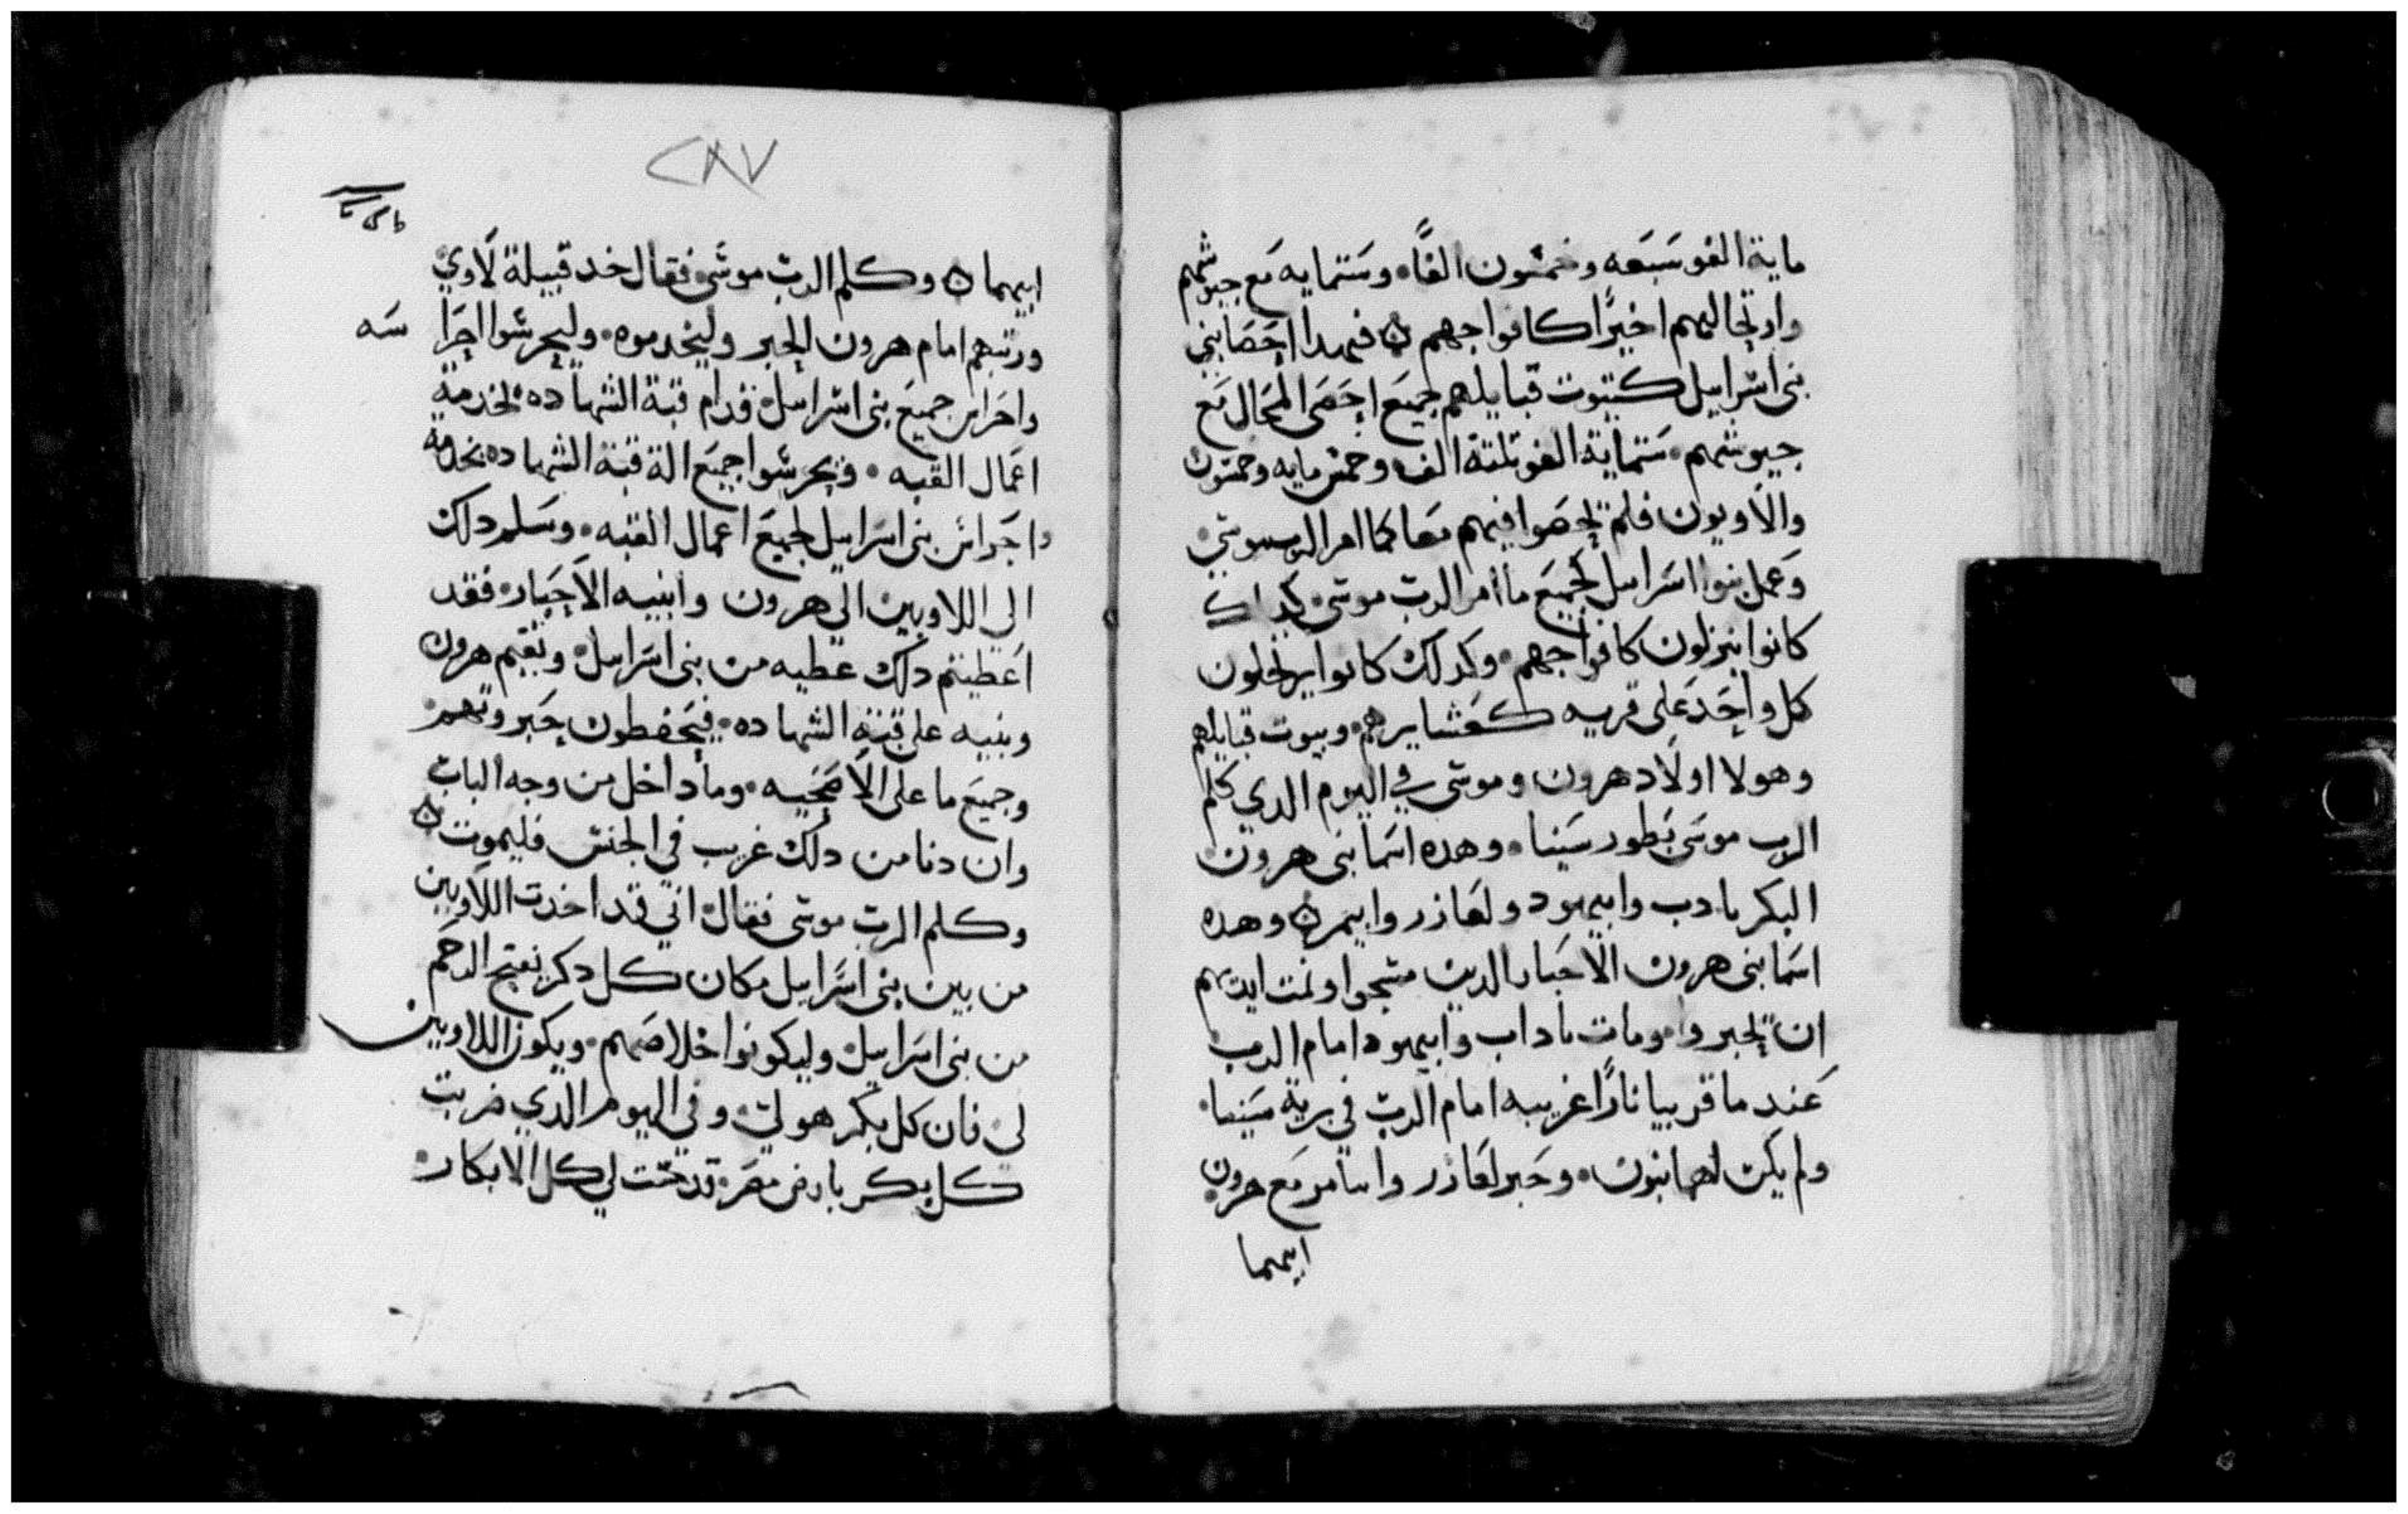 ماية الف وسبعه وخمسون الفًا وستمايه مع جيوشهم
وارتحالهم اخيرًا كافواجهم ۞ فهدا احصا بني
بني اسراييل كبيوت قبايلهم جميع احصى المحال مع
جيوشهم ستماية الف وتلتة الف وخمس مايه وخمسون
والاويون فلم تحصوا فيهم معا كما امر الرب موسي
وعمل بنوا اسراييل كجميع ما امر الرب موسى كداك
كانوا ينزلون كافواجهم وكدلك كانوا يرتحلون
كل واحد على قربه كعشايرهم وبيوت قبايلهم
وهولا اولاد هرون وموسى في اليوم الدي كلم
الرب موسى بطور سينا وهده اسما بني هرون
البكر نادب وابيهود ولعازر وايتمر ۞ وهده
اسما بني هرون الاحبار الدين مسحوا وتمت ايديهم
ان تحبروا ومات ناداب وابيهود امام الرب
عند ما قربيا نارًا غريبه امام الرب في برية سينا
ولم يكن لهما بنون وحبر لعازر واتامر مع هرون
ابيهما
٢٨٧
ابيهما ۞ وكلم الرب موسى فقال خد قبيلة لاوي
ورتبهم امام هرون الحبر وليخدموه وليحرسوا احرا
سه
واحراس جميع بني اسراييل قدام قبة الشهاده لخدمة
اعمال القبه ويحرسوا جميع الة قبة الشهاده بخدمة
واحراس بني اسراييل لجميع اعمال القبه وسلم دلك
الى اللاويين الى هرون وابنيه الاحبار فقد
اعطيتم دلك عطيه من بني اسراييل وتقيم هرون
وبنيه على قبة الشهاده فيحفطون حبروتهم
وجميع ما على الاضحيه وما داخل من وجه الباب
وان دنا من دلك غريب في الجنس فليموت ۞
وكلم الرب موسى فقال اني قد اخدت اللاويين
من بين بني اسراييل مكان كل دكر يفتح الرحم
من بني اسراييل وليكونوا خلاصهم ويكون اللاويين
لي فان كل بكر هو لي وفي اليوم الدي ضربت
كل بكر بارض مصر قدست لي كل الابكار